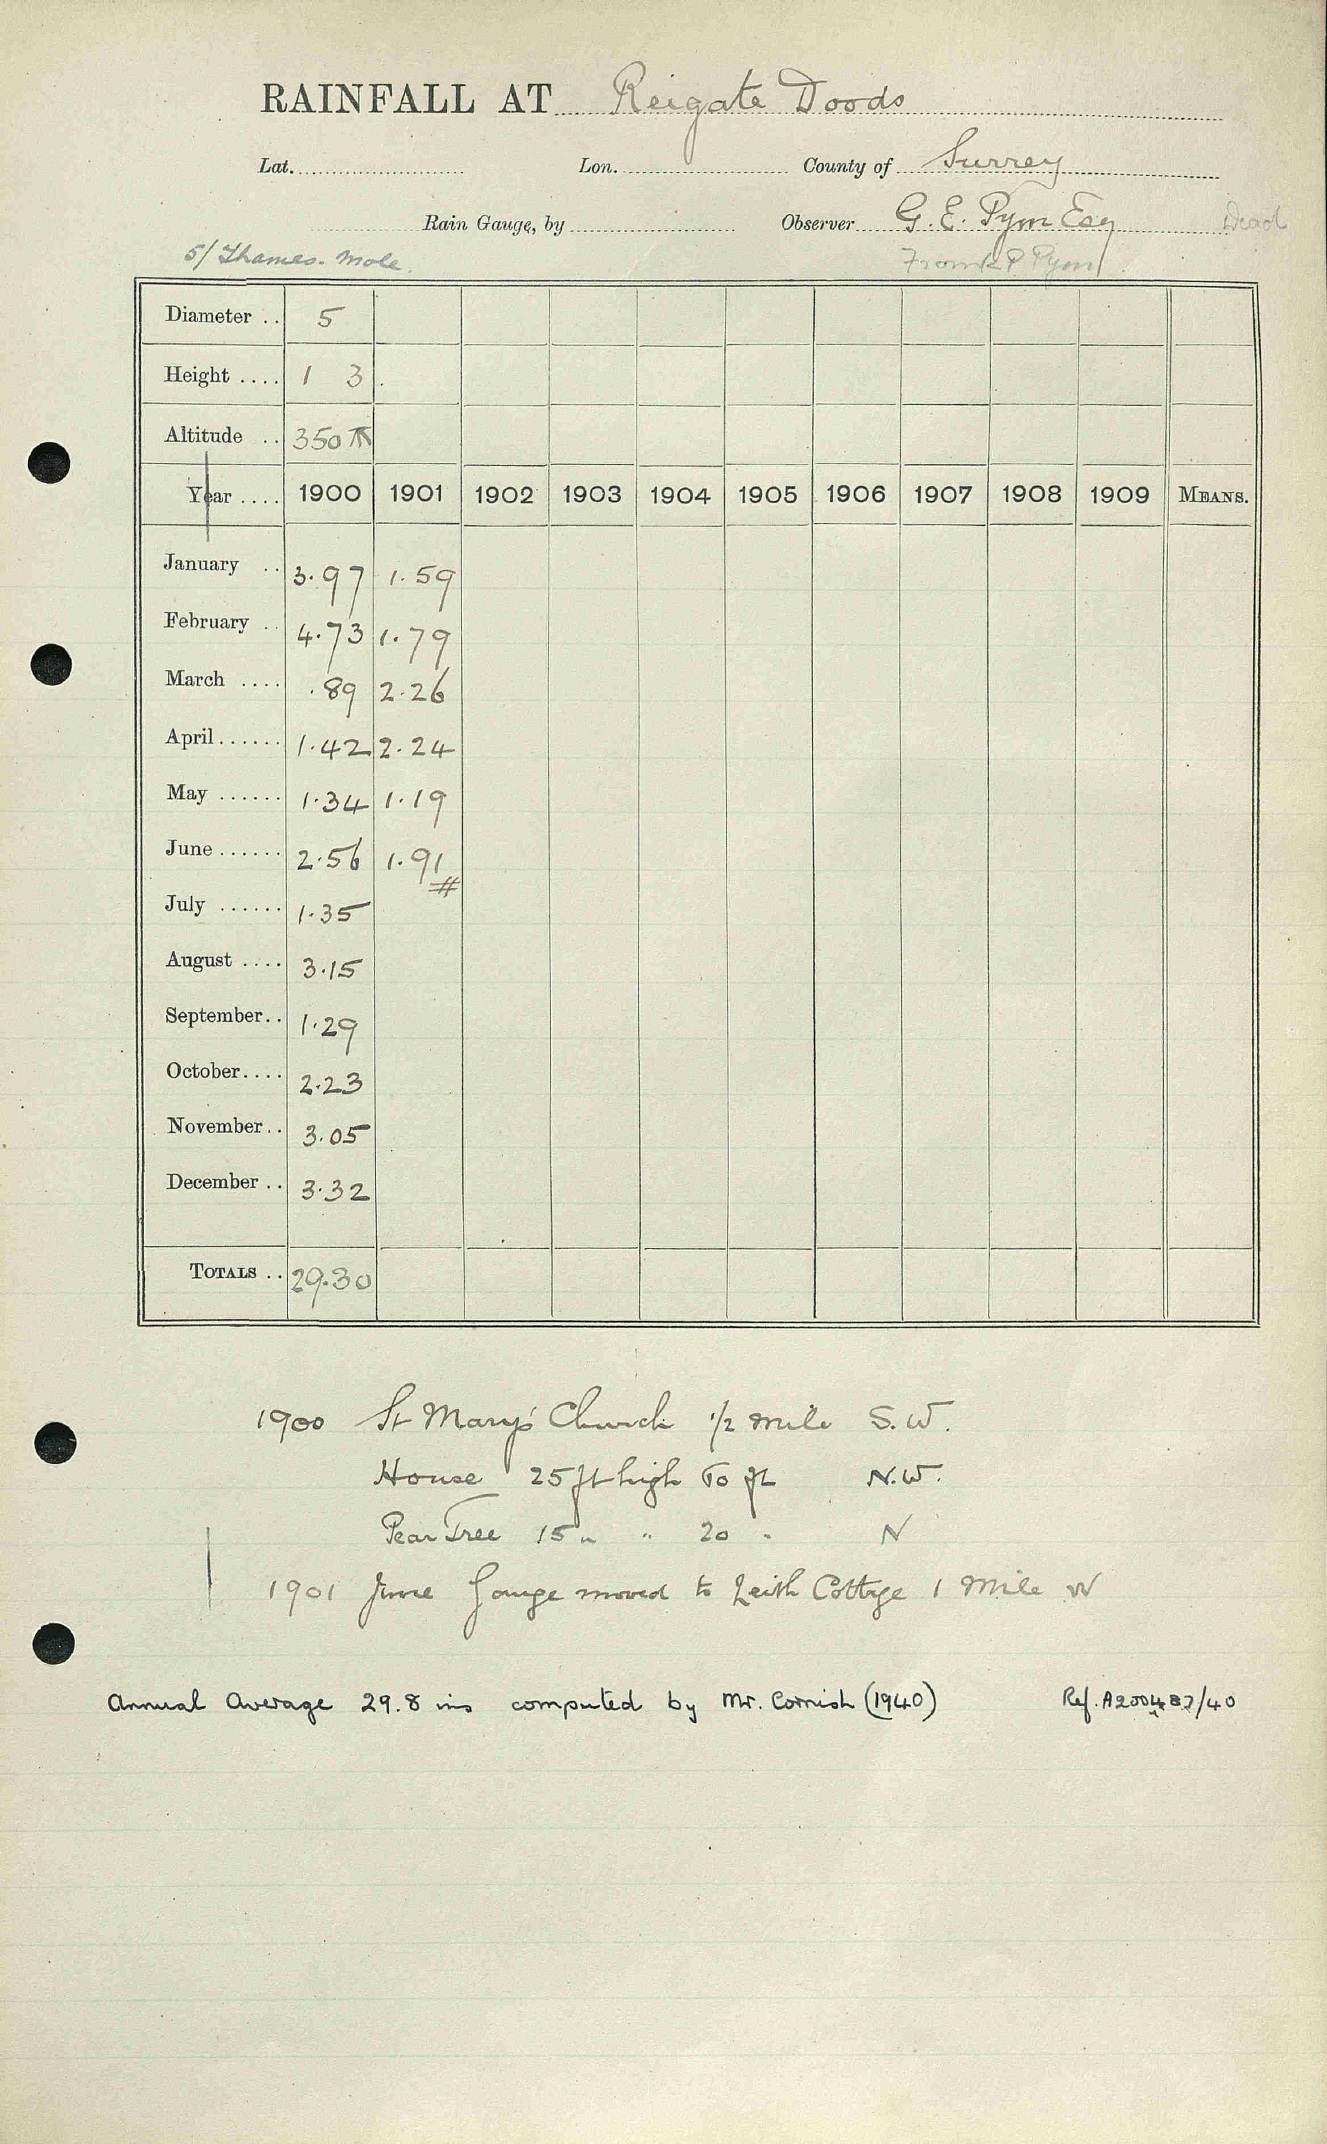 RAINFALL AT Reigate Doods
Lat. Lon. County of Surrey
Rain Gauge, by Observer G. E. Pym Esq Dead
5/ Thames. Mole. Frank P Pym
Diameter .. 5
Height .... 1 3
Altitude .. 350
Year .... 1900 1901 1902 1903 1904 1905 1906 1907 1908 1909 MEANS.
January .. 3.97 1.59
February .. 4.73 1.79
March .... .89 2.26
April ...... 1.42 2.24
May ...... 1.34 1.19
June ...... 2.56 1.91
#
July ...... 1.35
August .... 3.15
September.. 1.29
October.... 2.23
November.. 3.05
December .. 3.32
TOTALS .. 29.30
1900 St Mary's Church 1/2 mile S.W.
House 25 ft high 60 ft N.W.
Pear Tree 15 " " 20 " N
1901 June Gauge moved to Leith Cottage 1 Mile W
Annual Average 29.8 ins computed by Mr. Cornish (1940) Ref. A200483/40